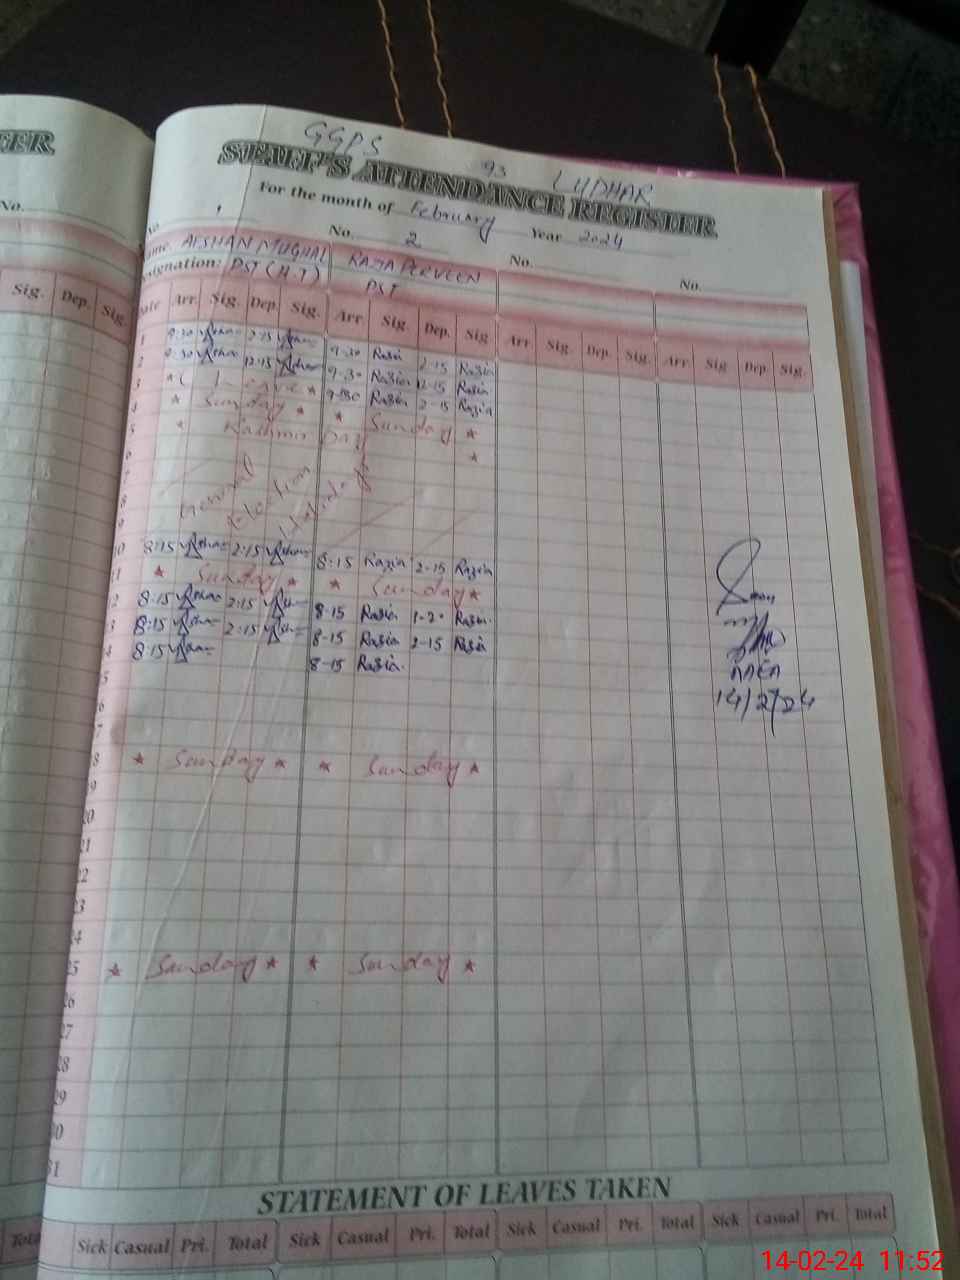 GGPS 93 LUDHAR
STAFF'S ATTENDANCE REGISTER
For the month of February Year 2024
No. No. 2 No. No.
AFSHAN MUGHAL RAZIA PERVEEN
Designation: PST (H.T) PST
Sig. Dep. Sig. Date Arr. Sig. Dep. Sig. Arr. Sig. Dep. Sig. Arr Sig. Dep. Sig. Arr. Sig Dep. Sig.
1 9:30 2:15 9-30 Razia 2-15 Razia
2 9:30 12:15 9-30 Razia 12-15 Razia
3 * ( Leave * 9-30 Razia 2-15 Razia
4 * Sunday * * Sunday *
5 * Kashmir Day *
6
7 General Election Holidays
8
9
10 8:15 2:15 8-15 Razia 2-15 Razia
11 * Sunday * * Sunday *
12 8:15 2:15 8-15 Razia Razia
3 8:15 2:15 8-15 Razia 2-15 Razia
4 8:15 8-15 Razia
5
6
7
8 * Sunday * * Sunday *
9
20
21
22
23
24
25 * Sunday * * Sunday *
26
27
28
29
30
31
AAEA
14/2/24
STATEMENT OF LEAVES TAKEN
Total Sick Casual Pri. Total Sick Casual Pri. Total Sick Casual Pri. Total Sick Casual Pri. Total
14-02-24 11:52